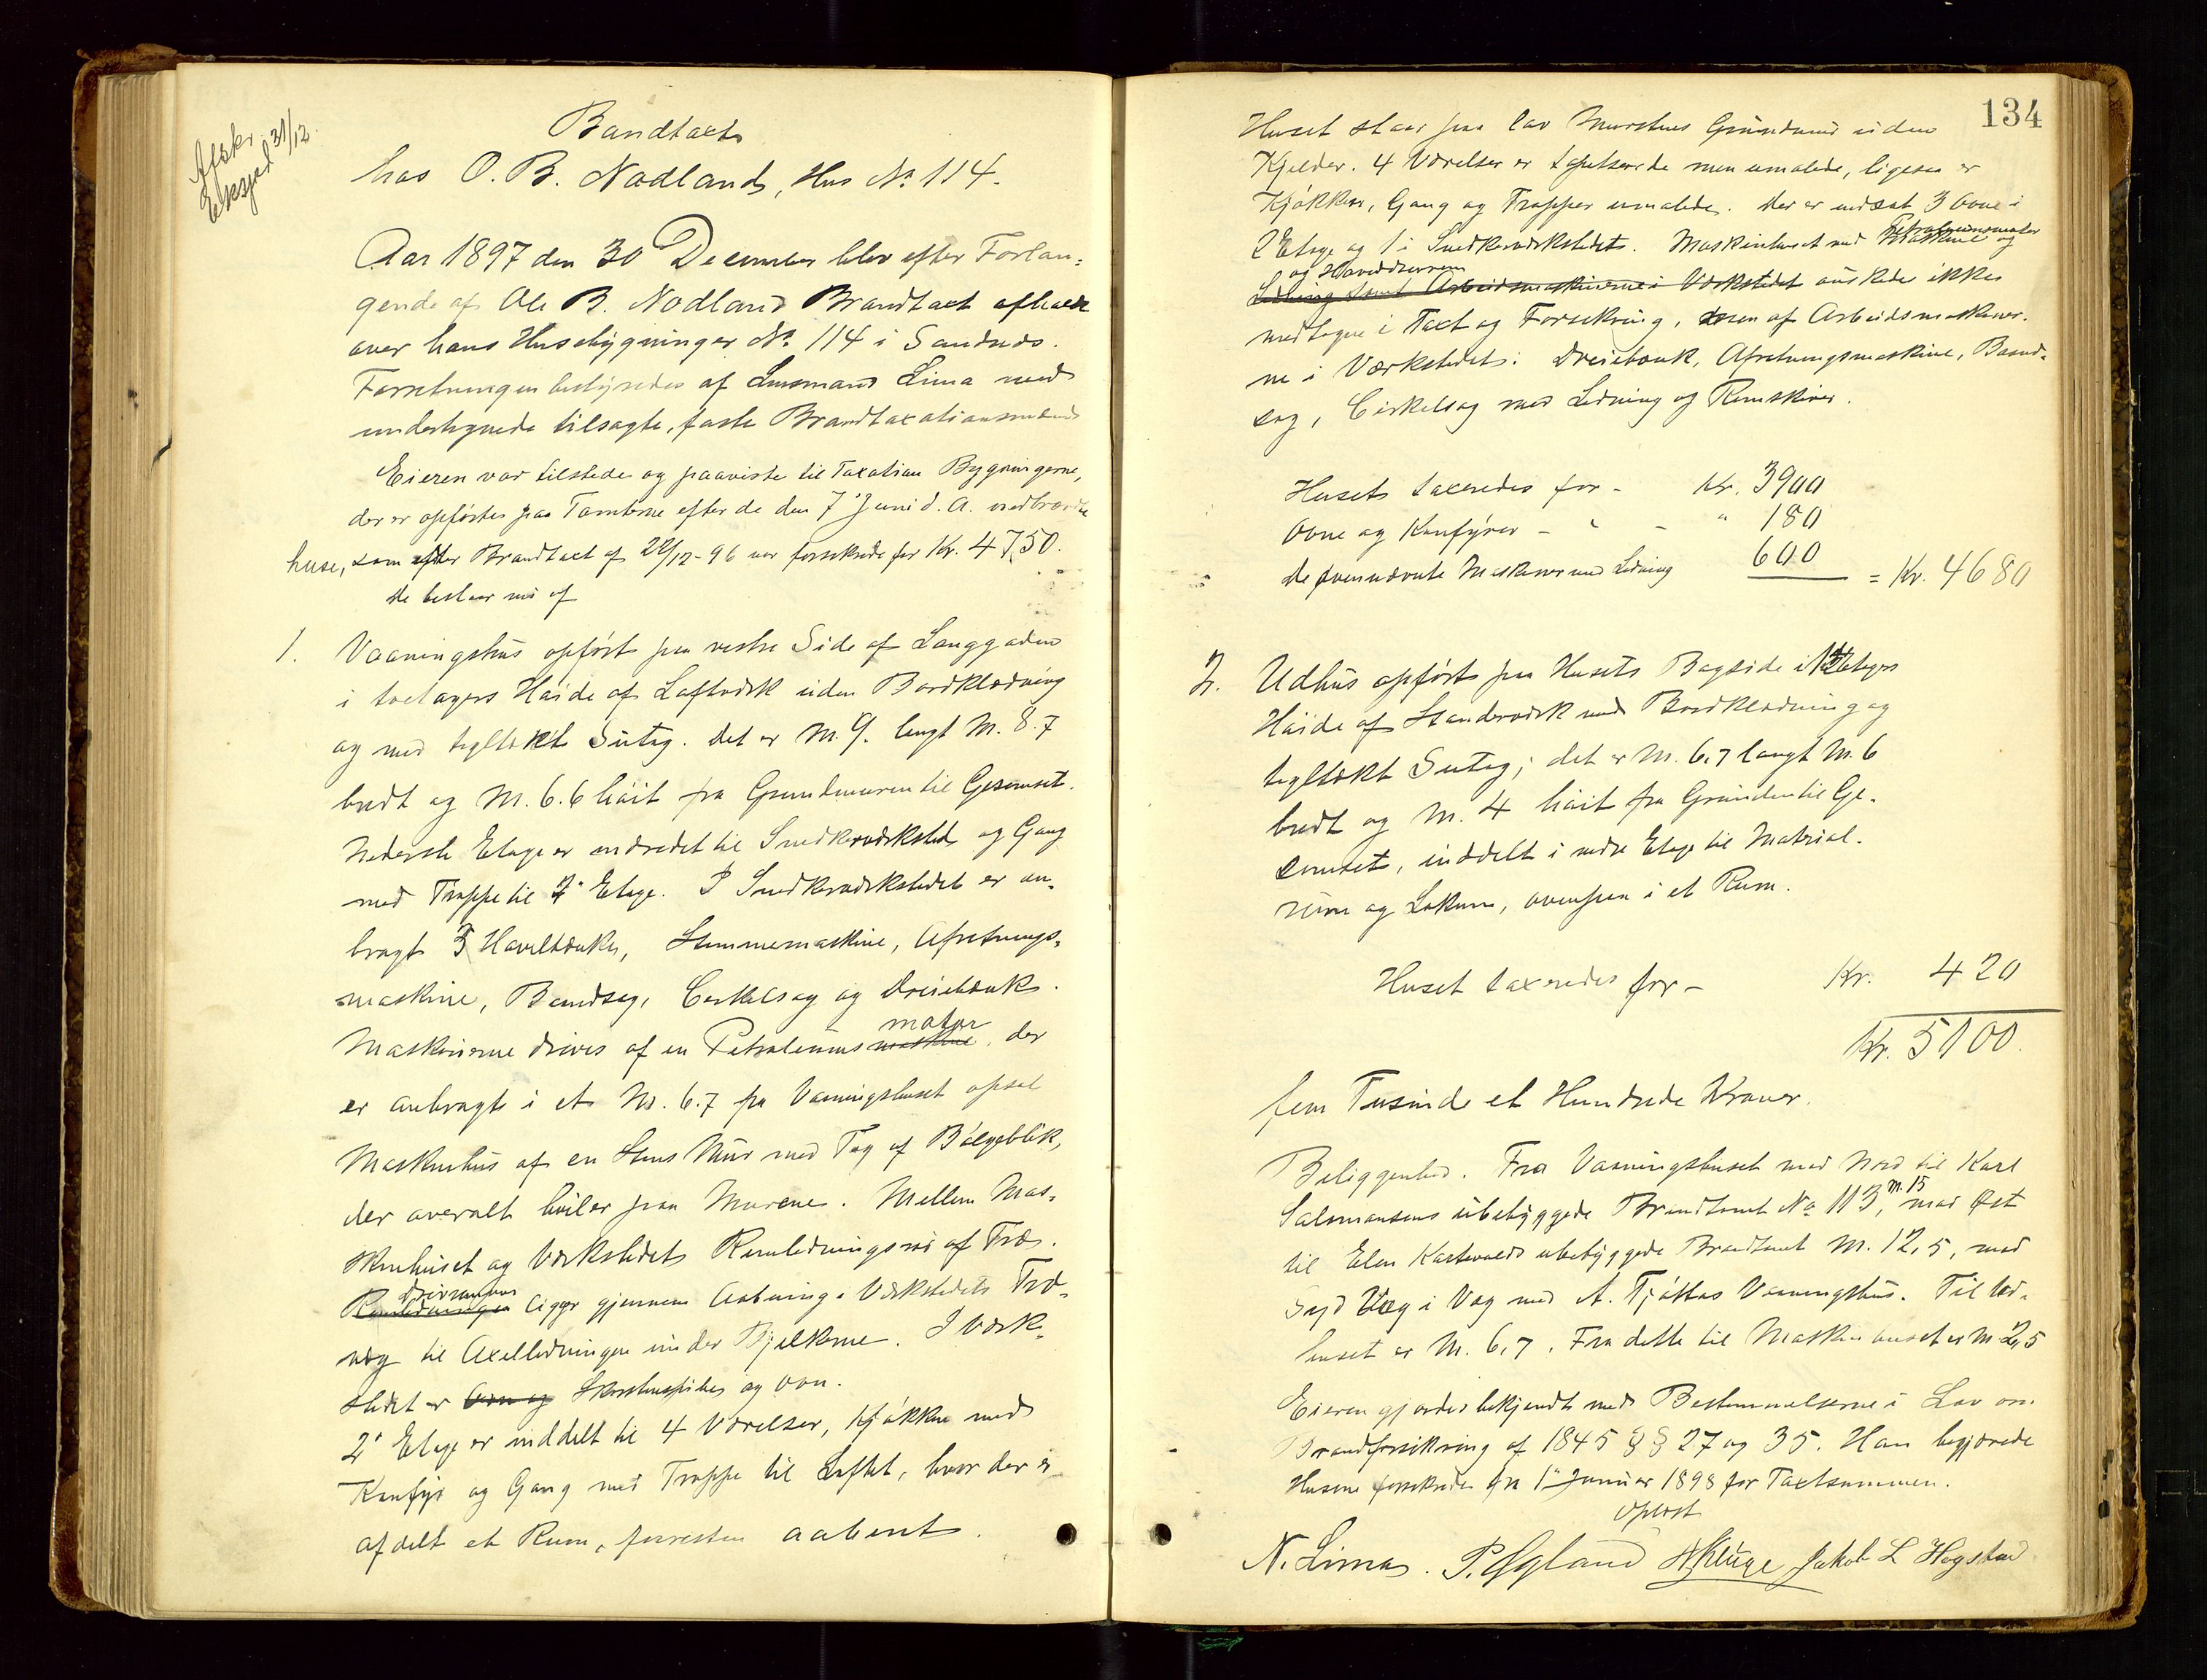 Afskr. 31/12.
Exsped
Bandtaxt
hos O. B. Nodland, Hus No 114.
Aar 1897 den 30 December blev efter Forlan-
gende af Ole B. Nodland Brandtaxt afholdt
over hans Husebygninger No 114 i Sandnes.
Forretningen bestyredes af Lensmand Lima med
undertegnede tilsagte, faste Brandtaxationsmænd
Eieren var tilstede og paaviste til Taxation Bygningerne,
der er opførtes paa Tomterne efter de den 7' Juni d. A. nedbrændte
huse, som efter Brandtaxt af 22/12-96 var forsikrede for Kr. 4750.
De bestaar nu af
1. Vaaningshus opført paa vestre Side af Langgaden
i toetages Høide af Laftværk uden Bordklædning
og med tegltækt Sutag. Det er M. 9. langt M. 8.7
bredt og M. 6.6 høit fra Grundmuren til Gesimset.
Nederste Etage er indredet til Snedkerværksted og Gang
med Trappe til 2' Etage. I Snedkerværkstedet er an-
bragt 3 Høvelbænker, Stemmemaskine, Afretnings-
maskine, Bandsag, Cirkelsag og Dreiebænk.
Maskinerne drives af en Petroleums maskine motor, der
er anbragt i et M. 6.7 fra Vaaningshuset opsat
Maskinhus af en Stens Mur med Tag af Bølgeblik,
der overalt hviler paa Murene. Mellem Mas-
kinhuset og Værkstedet Remledningsrør af Træ.
Remledningen Drivremmen ligger gjennem Aabning i Værkstedets Træ-
væg til Axelledningen under Bjelkerne. I Værk-
stedet er Ovn og Skorstenspibe og Ovn.
2' Etage er inddelt til 4 Værelser, Kjøkken med
Komfyr og Gang med Trappe til Loftet, hvor der er
afdelt et Rum, forresten aabent.
134
Huset staar paa lav Murstens Grundmur uden
Kjelder. 4 Værelser er tapetserede men umalede, ligesaa er
Kjøkken, Gang og Trapper umalede. Der er indsat 3 Ovne i
2 Etage og 1 i Snedkerværkstedet. Maskinhuset med Maskine Petroleumsmotor og
og Hoveddrivrem
Ledning samt Arbeidsmaskinerne i Værkstedet ønskedes ikke
medtagne i Taxt og Forsikring, men af Arbeidsmaskiner-
ne i Værkstedet: Dreiebænk, Afretningsmaskine, Baand-
sag, Cirkelsag med Ledning og Remskiver.
Huset taxeredes for - Kr. 3900
Ovne og Komfyrer - " - " 180
De ovennævnte Maskiner med Ledning 600 = Kr. 4680
2. Udhus opført paa Husets Bagside i 1½ Etages
Høide af Standerværk med Bordklædning og
tegltækt Sutag; det er M. 6,7 langt M. 6
bredt og M. 4 høit fra Grunden til Ge-
simset, inddelt i nedre Etage til Material-
rum og Lokum, ovenpaa i et Rum.
Huset taxeredes for - Kr. 420
Kr. 5100.
fem Tusinde et Hundrede Kroner.
Beliggenhed. Fra Vaaningshuset mod Nord til Karl
Salomonsens ubebyggede Brandtomt No 113, m. 15 mod Øst
til Elen Kartevolds ubebyggede Brandtomt M. 12,5, mod
Syd Væg i Væg med A. Tjøttas Vaaningshus. Til Ud-
huset er M. 6,7. Fra dette til Maskinhuset er M 2,5
Eieren gjordes bekjendt med Bestemmelserne i Lov om
Brandforsikring af 1845 §§ 27 og 35. Han begjærede
Husene forsikrede fra 1' Januar 1898 for Taxtsummen.
Oplæst
N. Lima. P. Egland H Kluge Jakob L Hogstad